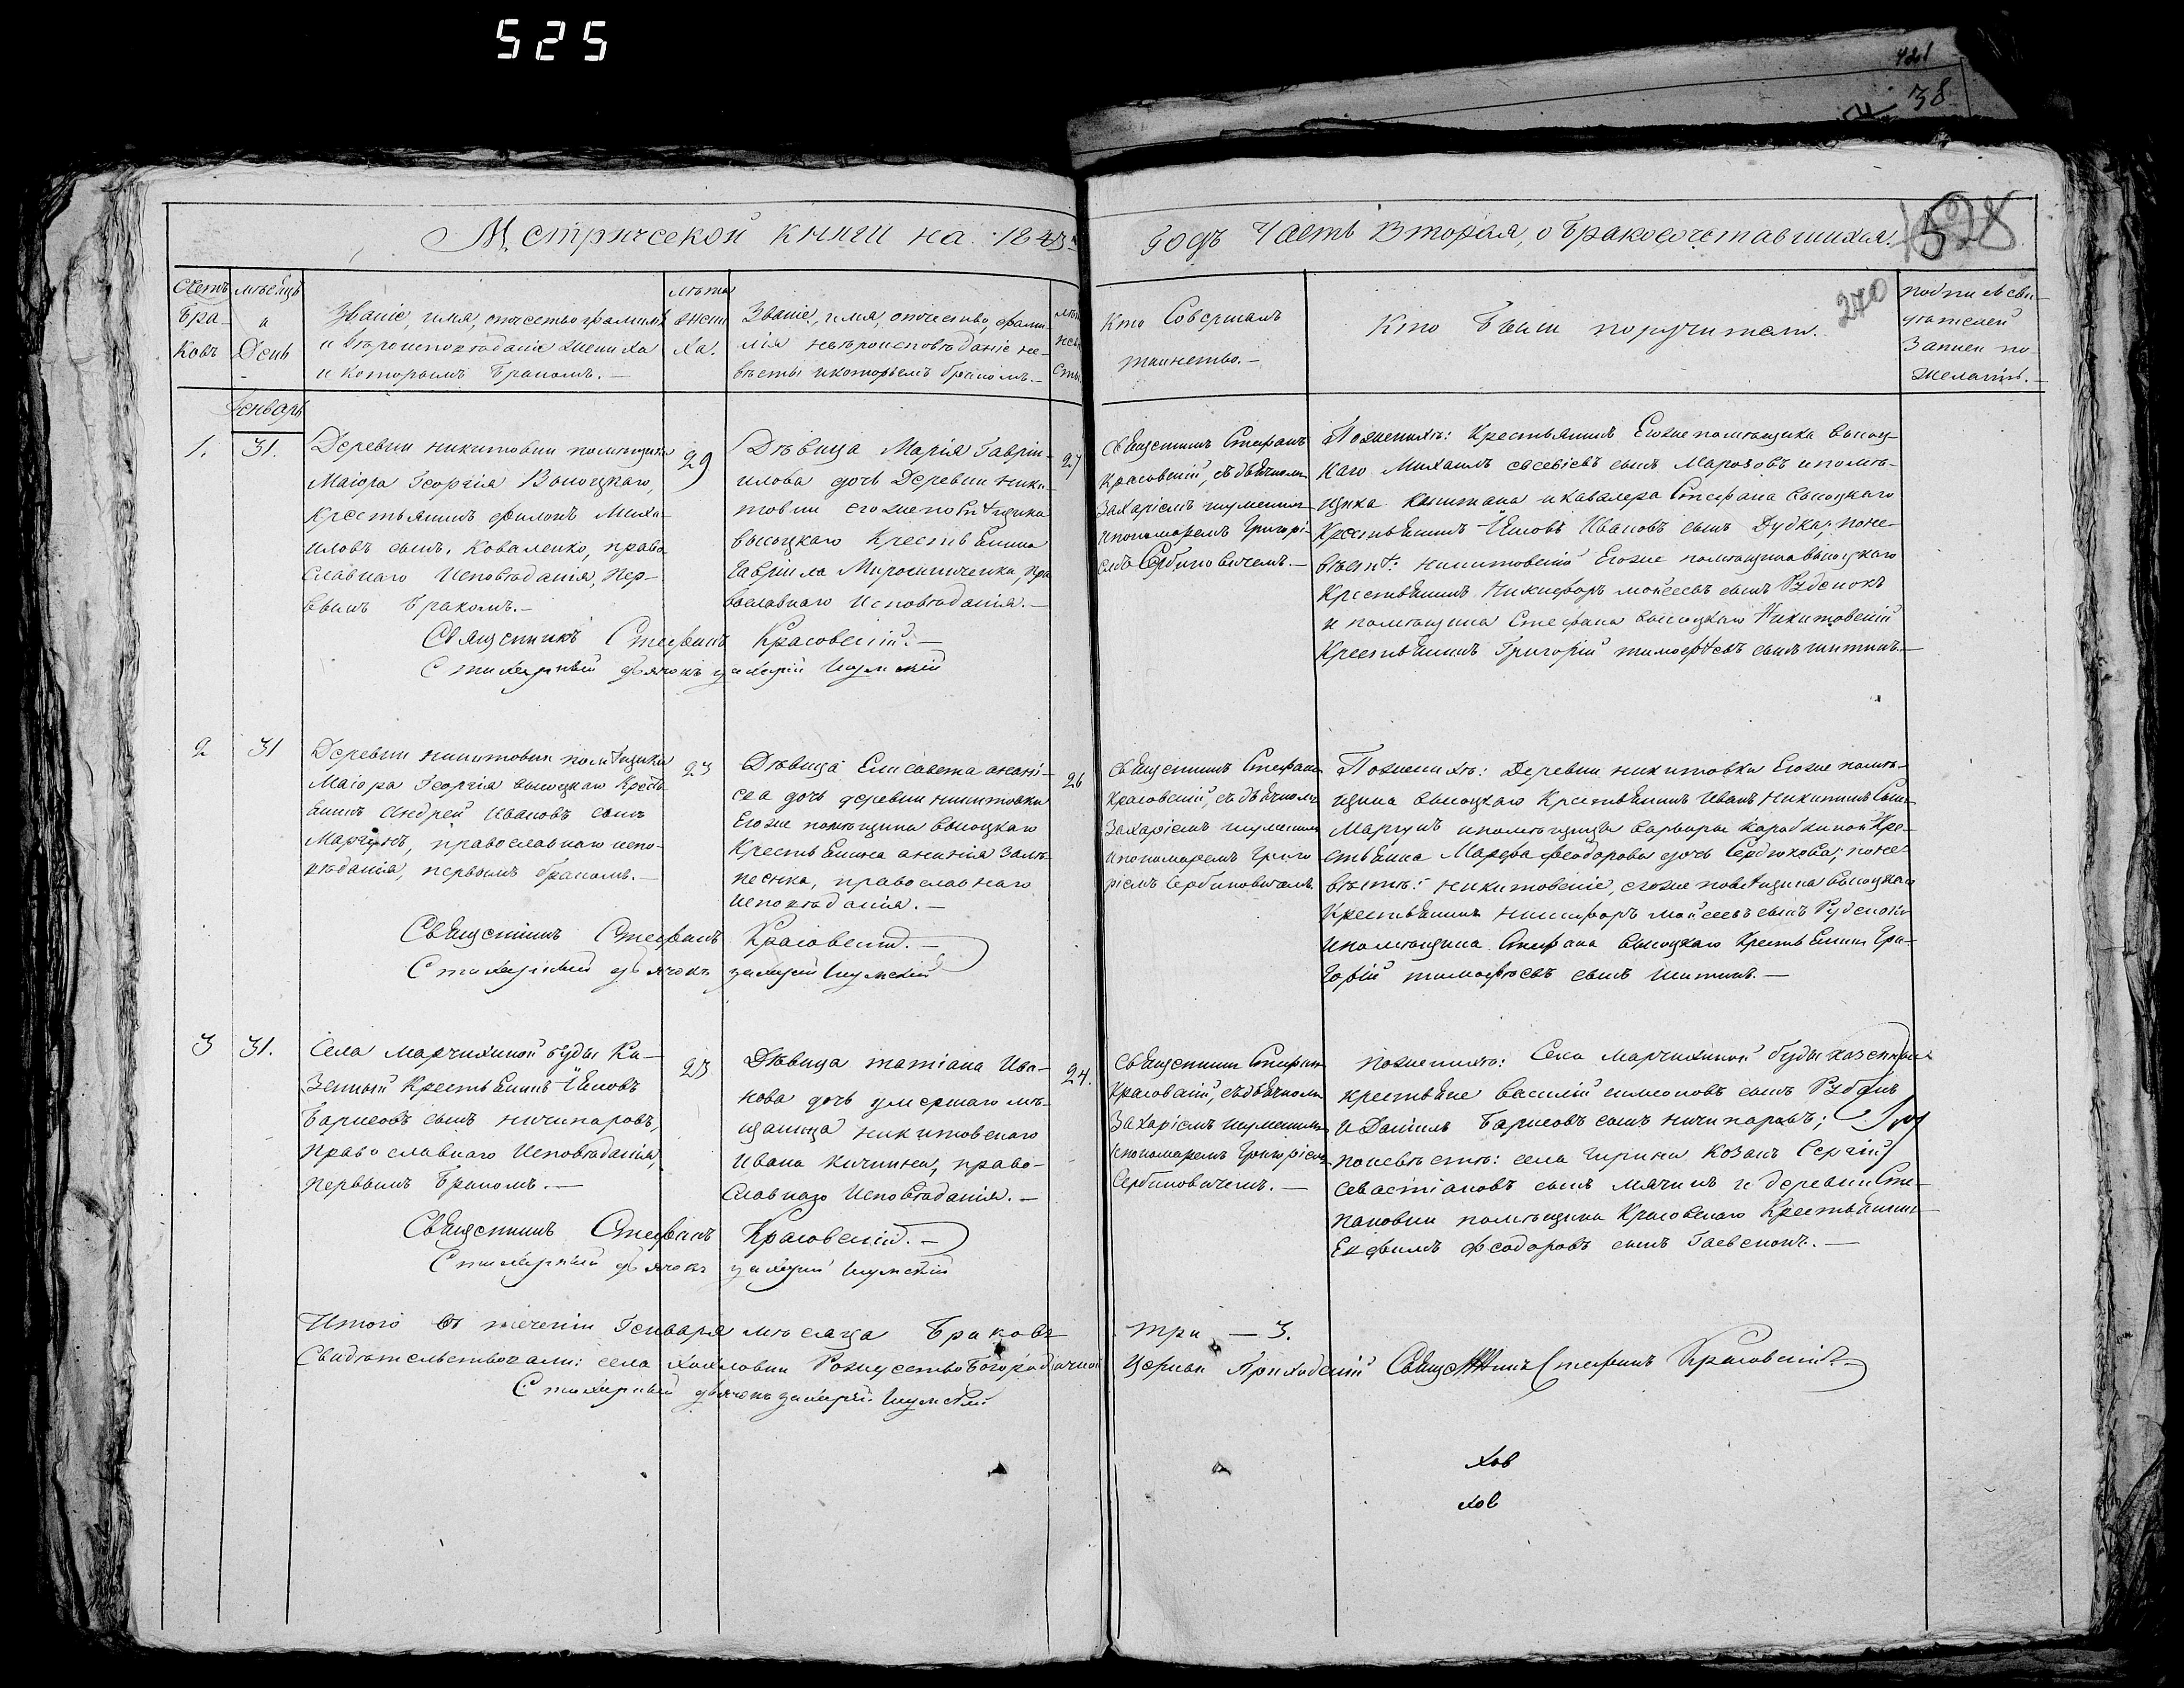 525
421
38
528
270
Метрической книги на 1843й
годъ Часть Вторая, о бракосочетавшихся.
Счетъ
бра-
ковъ
мѣсяцъ
и
День
Званіе, имя, отчество фамилія
и вѣроисповѣданіе жениха
и которымъ бракомъ.—
лѣта
жени
ха.
Званіе, имя, отчество, фами-
лія и вѣроисповѣданіе не-
вѣсты и которымъ бракомъ.—
лѣта
невѣ
сты.
Кто Совершалъ
таинство.—
Кто были поручители.
подпись сви-
дѣтелей
записи по
желанію.—
Генварь
1.
31.
Деревни никитовки помѣщика
Маіора Георгія Высоцкаго,
крестьянинъ филонъ Миха-
иловъ сынъ, Коваленко, право
славнаго Исповѣданія, пер-
вымъ бракомъ.—
29
Дѣвица Марія Гаврі-
илова дочь Деревни ники-
товки егоже помѣщика
высоцкаго Крестьянина
Гавріила Мирошниченка, пра
вославнаго Исповѣданія.—
27
Священникъ Стефанъ
Красовскій, съ дьячкомъ
Захаріемъ шумскимъ
и пономаремъ Григорі-
емъ Сербиновичемъ.—
По женихѣ: Крестьянинъ Егоже помѣщика высоц-
каго Михаилъ евсевіевъ сынъ Марозовъ и помѣ-
щика капитана и кавалера Стефана высоцкаго
Крестьянинъ Іяковъ Ивановъ сынъ Дудка; по не-
вѣстѣ: никитовскій Егоже помѣщика высоцкаго
Крестьянинъ Никифоръ мойсеевъ сынъ Руденокъ
и помѣщика Стефана высоцкаго Никитовскій
Крестьянинъ Григорій тимофѣевъ сынъ шитикъ.—
Священникъ Стефанъ Красовскій.—
Стихарный дьячокъ захарій Шумскій
2
31
Деревни никитовки помѣщика
Маіора Георгія высоцкаго Кресть
янинъ Андрей Ивановъ сынъ
Марчукъ, православнаго испо-
вѣданія, первымъ бракомъ.—
23
Дѣвица Елисавета анані-
ева дочь деревни никитовки
Егоже помѣщика высоцкаго
Крестьянина ананія
православнаго
исповѣданія.—
26
Священникъ Стефанъ
Красовскій, съ дьячкомъ
Захаріемъ шумскимъ
и пономаремъ Григо
ріемъ Сербиновичемъ.
По женихѣ: Деревни никитовки Егоже помѣ-
щика высоцкаго Крестьянинъ Иванъ Никитинъ сынъ
Марчукъ и помѣщицы варвары Каробкиной Кре-
стьянина Марфа феодорова дочь Сердюкова; по не-
вѣстѣ: никитовскіе, егоже помѣщика высоцкаго
Крестьянинъ никифоръ мойсеевъ сынъ Руденокъ
и помѣщика Стефана высоцкаго Крестьянинъ Гри-
горій тимофѣевъ сынъ шитикъ.—
Священникъ Стефанъ Красовскій.—
Стихарный дьячокъ захарій Шумскій
3
31.
Села марчихиной буды Ка-
зенный Крестьянинъ Іяковъ
Барисовъ сынъ ничипаровъ,
Православнаго Исповѣданія,
первымъ бракомъ.—
23
Дѣвица татіана Ива-
нова дочь умершаго мѣ-
щанина никитовскаго
Ивана право-
славнаго Исповѣданія.—
24.
Священникъ Стефанъ
Красовскій, съ дьячкомъ
Захаріемъ шумскимъ
и пономаремъ Григоріемъ
Сербиновичемъ.—
по женихѣ: Села марчихиной буды казенные
крестьяне василій симоновъ сынъ Рубанъ
и Даніилъ Барисовъ сынъ ничипаровъ;
по невѣстѣ: села чирики Козакъ Сергій
севастіановъ сынъ и деревни Сте-
пановки помѣщика Красовскаго Крестьянинъ
Ефимъ феодоровъ сынъ Гаевскокъ.—
Священникъ Стефанъ Красовскій.—
Стихарный дьячокъ захарій Шумскій
Итого въ теченіи Генваря мѣсяца браковъ три — 3.
Свидѣтельствовали: села Хохловки Рождество Богородичной церкви Приходскій Священникъ Стефанъ Красовскій
Стихарный дьячокъ захарій Шумскій